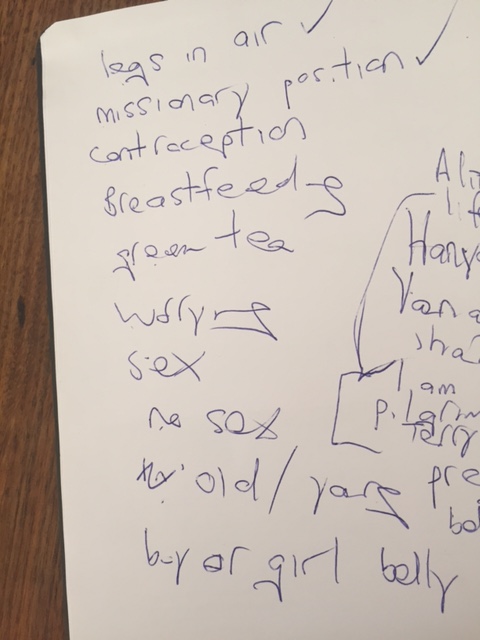 legs in air ✓
missionary position ✓
contraception
Breastfeeding
green tea
worrying
sex
no sex
old / yang pre
boy or girl belly
Hanya
I am
Pilgrim
Terry